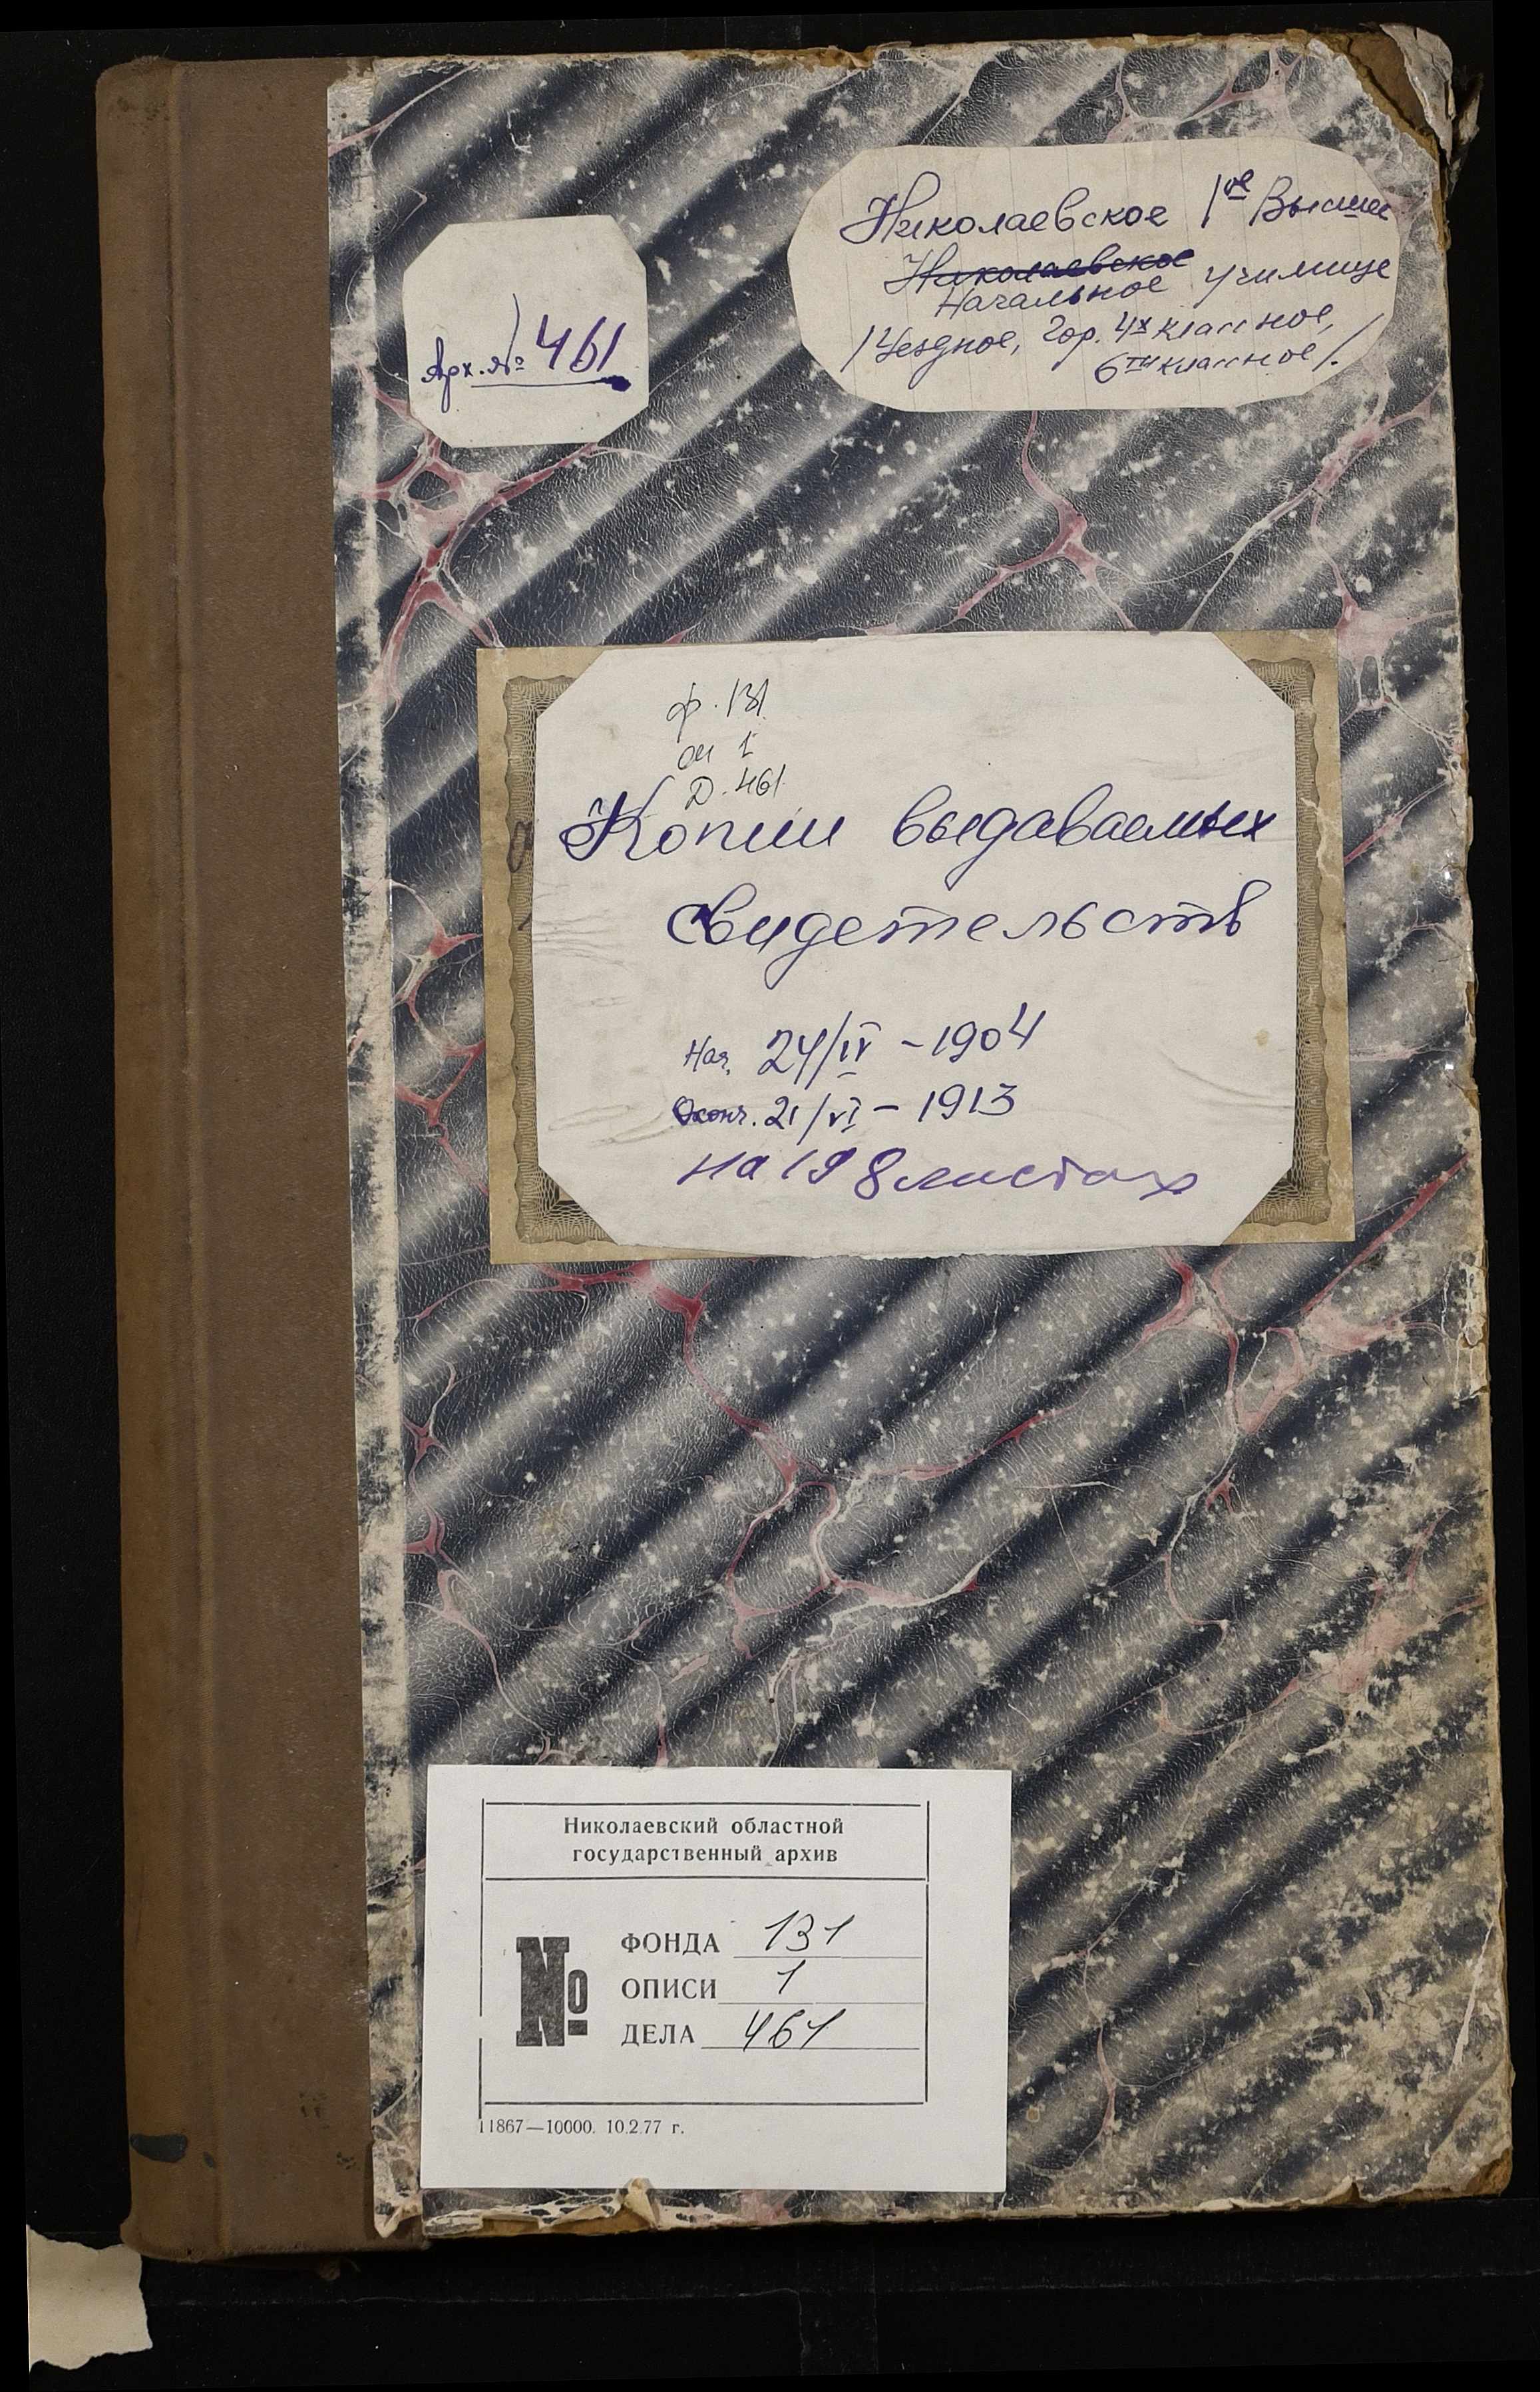 Николаевское 1ое Высшее
Николаевское
Начальное училище
/Уездное, Гор. 4х классное,
6ти классное/.
Арх. № 461
ф. 131
оп 1
Д. 461
Копии выдаваемых
свидетельств
Нач. 24/IV - 1904
Оконч. 21/VI - 1913
на 198 листах
Николаевский областной
государственный архив
№
ФОНДА 131
ОПИСИ 1
ДЕЛА 461
11867—10000. 10.2.77 г.